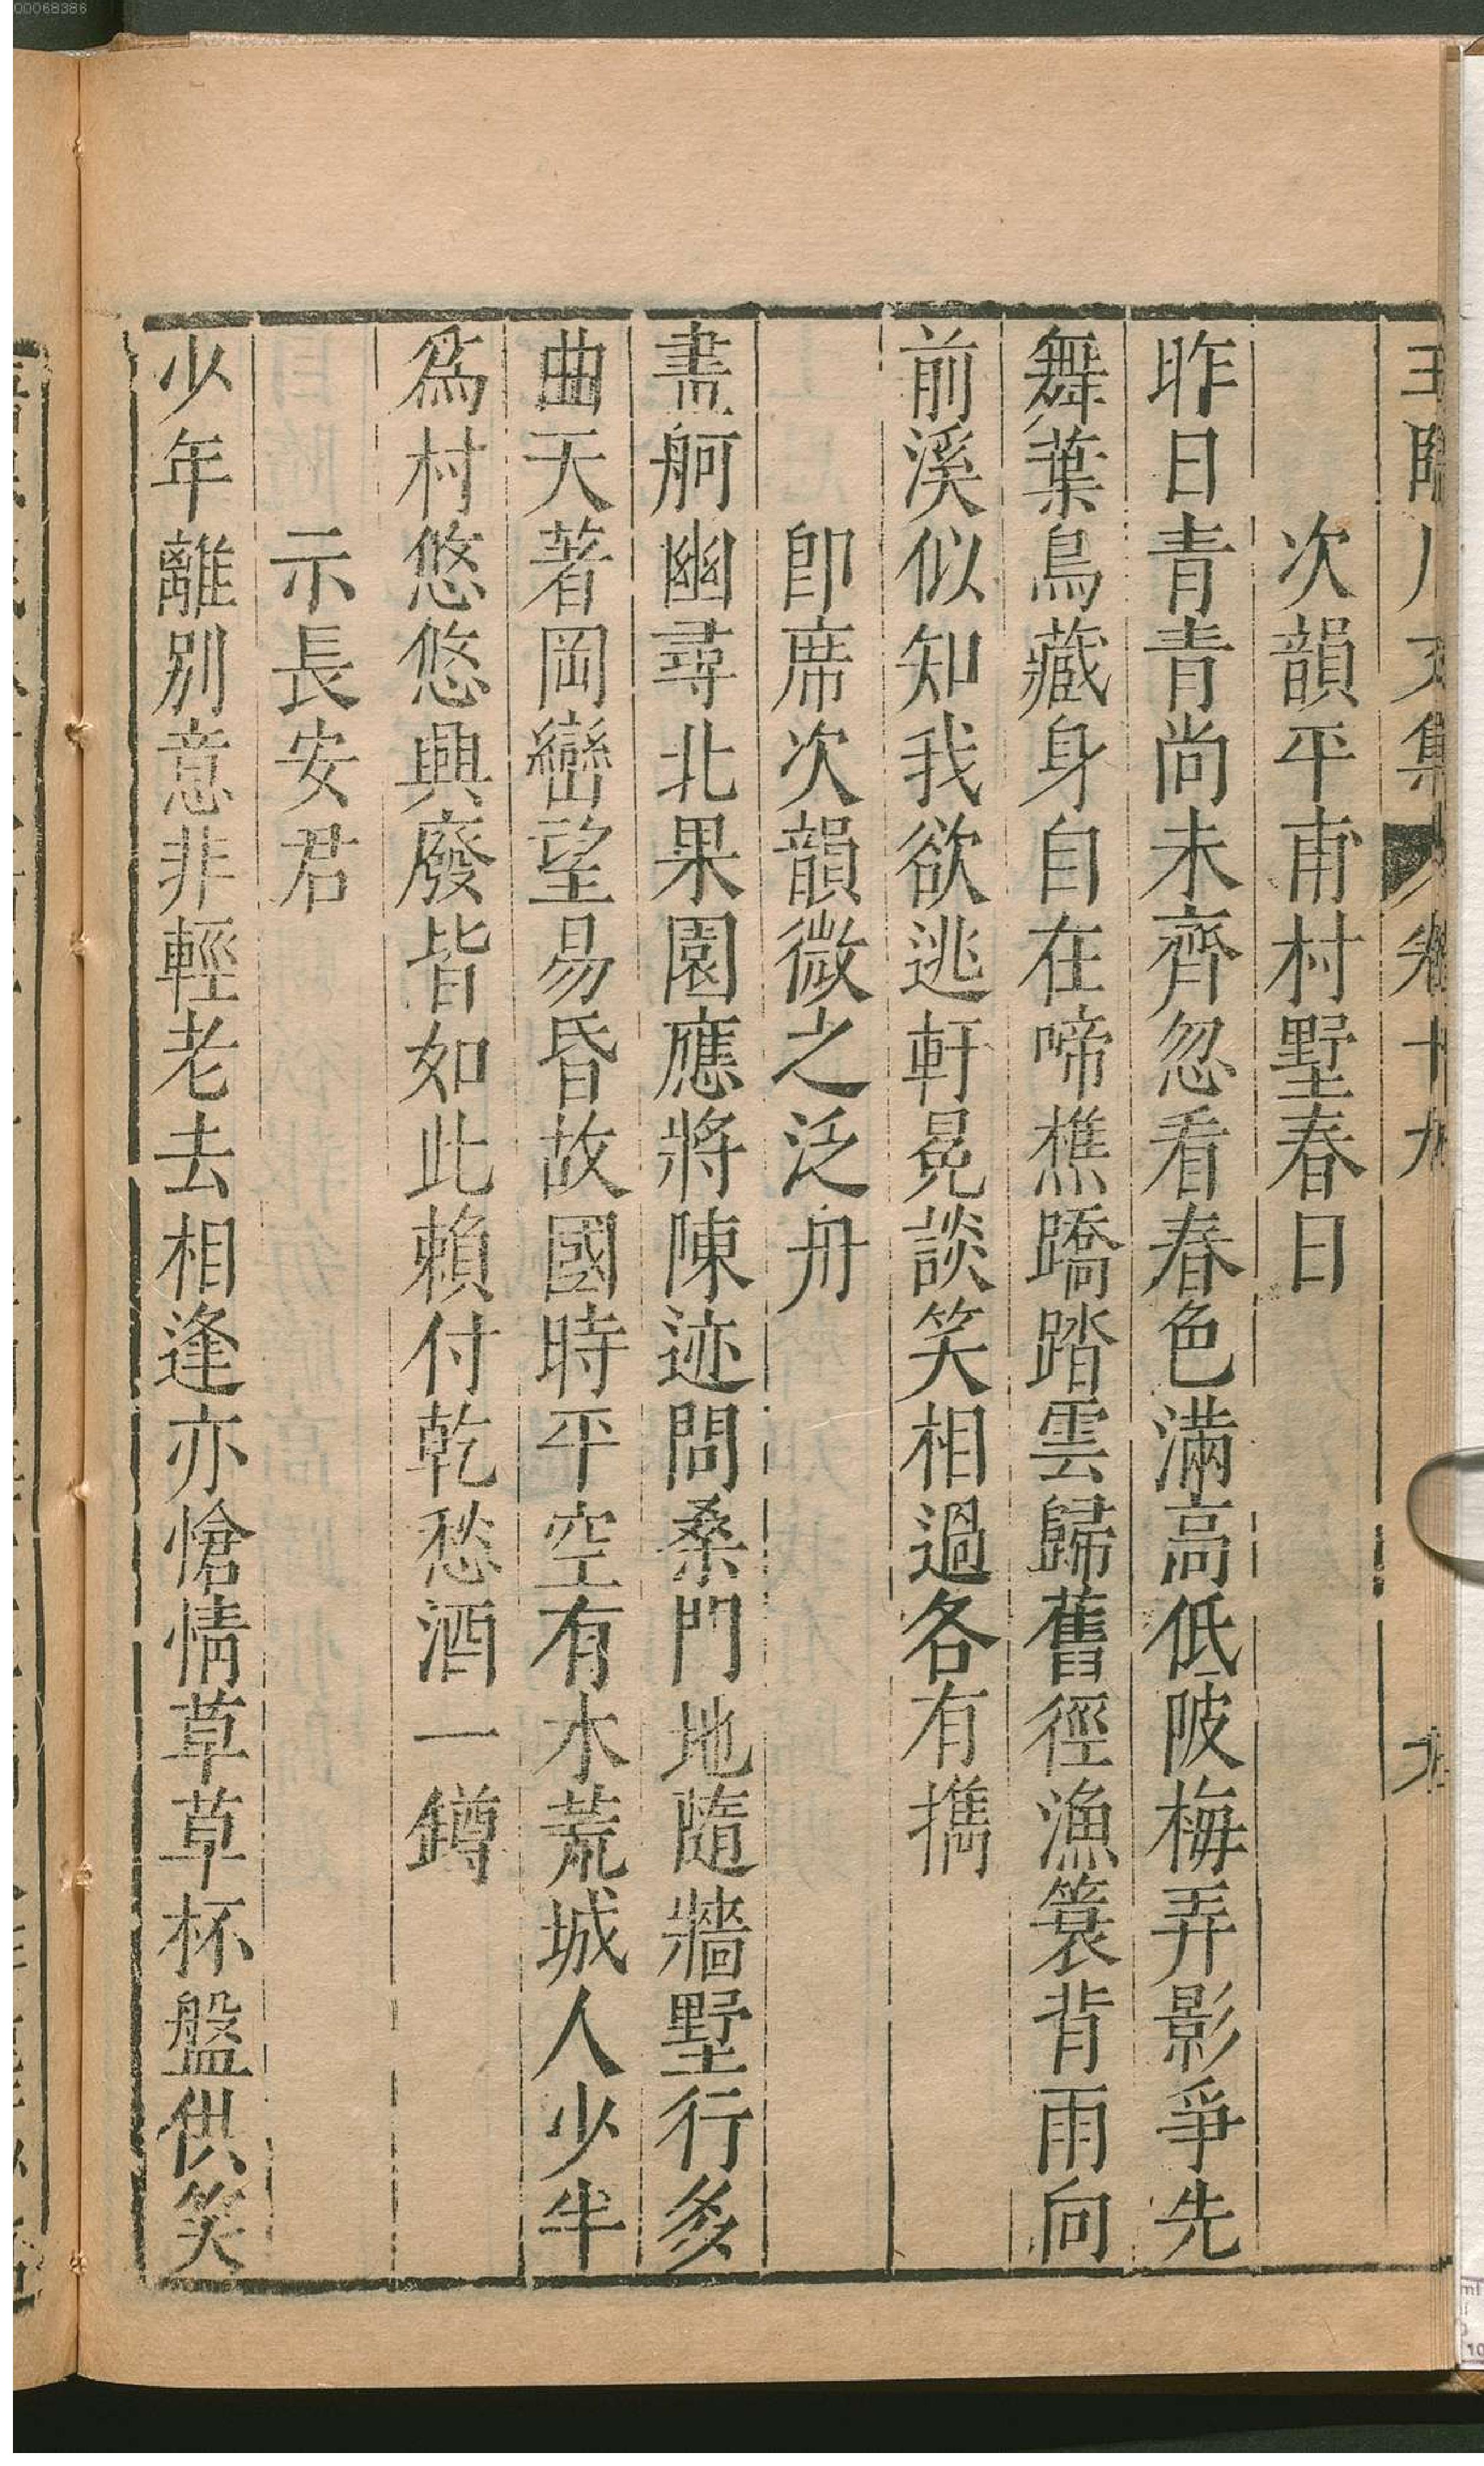 00068386
王臨川文集 卷十九 九
次韻平甫村墅春日
昨日青青尚未齊忽看春色滿高低陂梅弄影爭先
舞葉鳥藏身自在啼樵蹻踏雲歸舊徑漁簑背雨向
前溪似知我欲逃軒冕談笑相過各有攜
卽席次韻微之泛舟
畫舸幽尋北果園應將陳迹問桑門地隨牆墅行多
曲天著岡巒望易昏故國時平空有木荒城人少半
爲村悠悠興廢皆如此賴付乾愁酒一鐏
示長安君
少年離別意非輕老去相逢亦愴情草草杯盤供笑